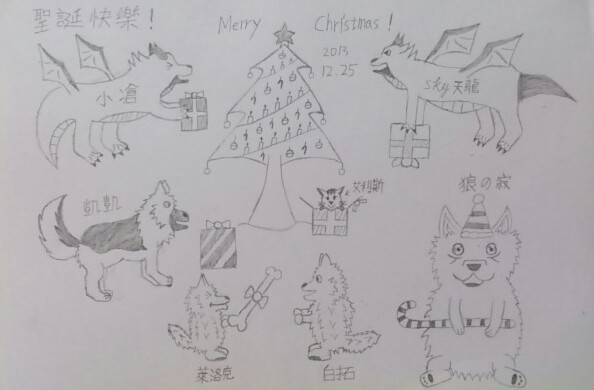 聖誕快樂！
Merry Christmas！
2013
12.25
小滄
sky天龍
凱凱
艾利斯
狼の寂
萊洛克
白拓